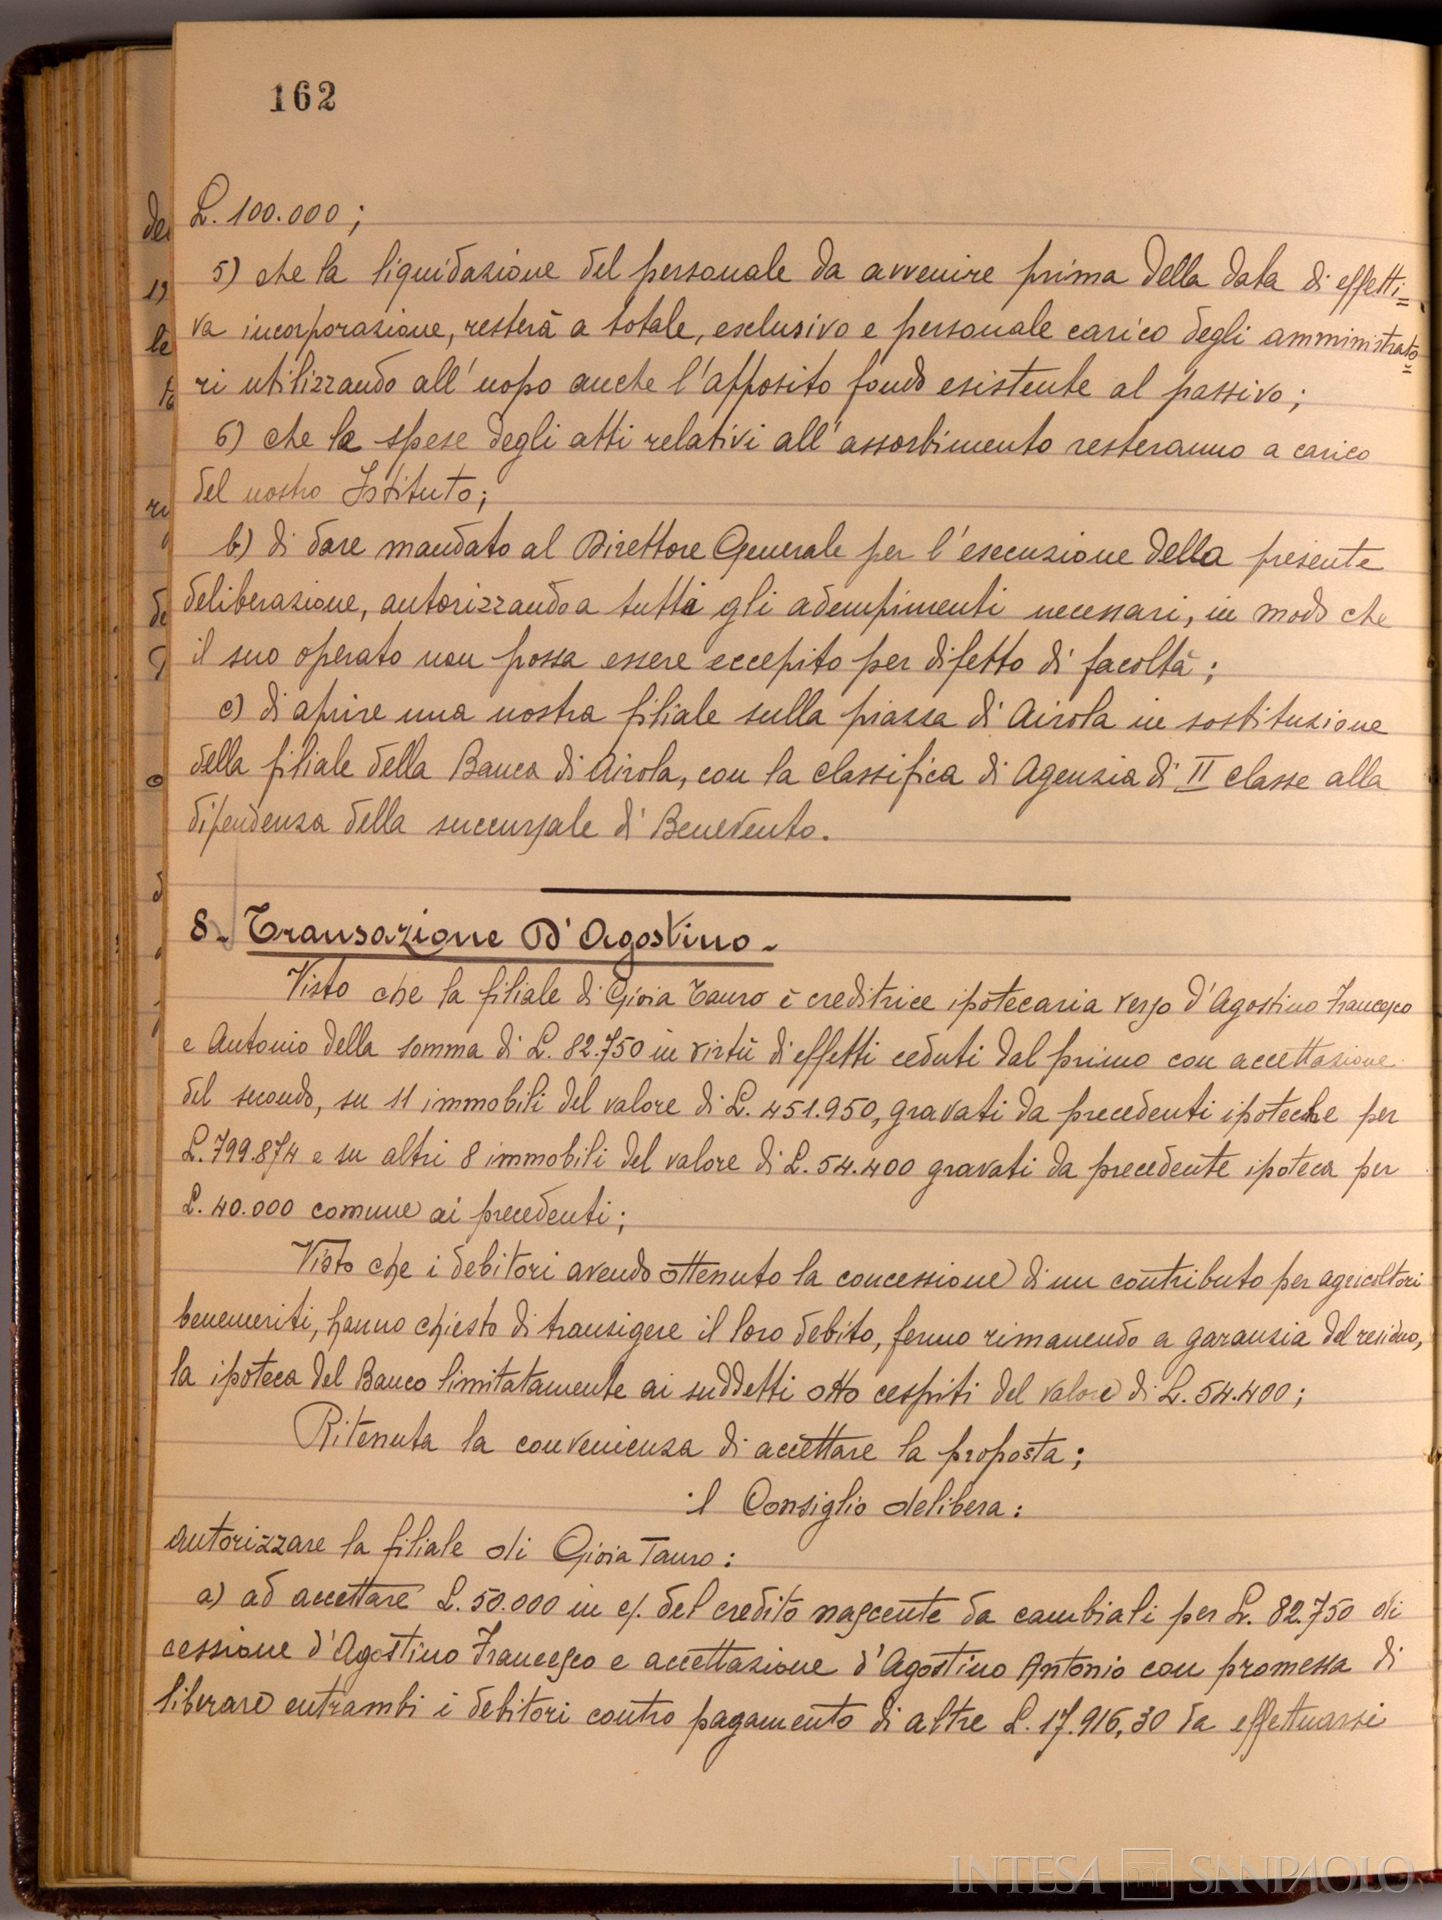 162
L. 100.000;
5) che la liquidazione del personale da avvenire prima della data di effetti=
va incorporazione, resterà a totale, esclusivo e personale carico degli amministrato=
ri utilizzando all'uopo anche l'apposito fondo esistente al passivo;
6) che le spese degli atti relativi all'assorbimento resteranno a carico
del nostro Istituto;
b) di dare mandato al Direttore Generale per l'esecuzione della presente
deliberazione, autorizzandoa tutti gli adempimenti necessari, in modo che
il suo operato non possa essere eccepito per difetto di facoltà;
c) di aprire una nostra filiale sulla piazza di Airola in sostituzione
della filiale della Banca di Airola, con la classifica di Agenzia di II classe alla
dipendenza della succursale di Benevento.
8 - Transazione D'Agostino -
Visto che la filiale di Gioia Tauro è creditrice ipotecaria verso d'Agostino Francesco
e Antonio della somma di L. 82.750 in virtù di effetti ceduti dal primo con accettazione
del secondo, su 11 immobili del valore di L. 451.950, gravati da precedenti ipoteche per
L. 799.874 e su altri 8 immobili del valore di L. 54.400 gravati da precedente ipoteca per
L. 40.000 comune ai precedenti;
Visto che i debitori avendo ottenuto la concessione di un contributo per agricoltori
benemeriti, hanno chiesto di transigere il loro debito, fermo rimanendo a garanzia del residuo,
la ipoteca del Banco limitatamente ai suddetti otto cespiti del valore di L. 54.400;
Ritenuta la convenienza di accettare la proposta;
il Consiglio delibera:
autorizzare la filiale di Gioia Tauro:
a) ad accettare L. 50.000 in c/. del credito nascente da cambiali per L. 82.750 di
cessione d'Agostino Francesco e accettazione d'Agostino Antonio con promessa di
liberare entrambi i debitori contro pagamento di altre L. 17.916,30 da effettuarsi
INTESA SANPAOLO